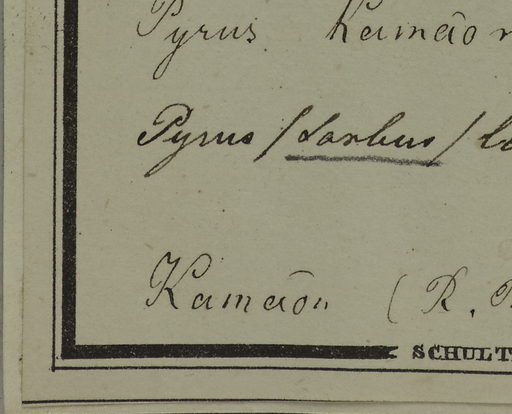 Pyrus Kamāo
Pyrus / Sorbus /
Kamāon ( R.
SCHULT